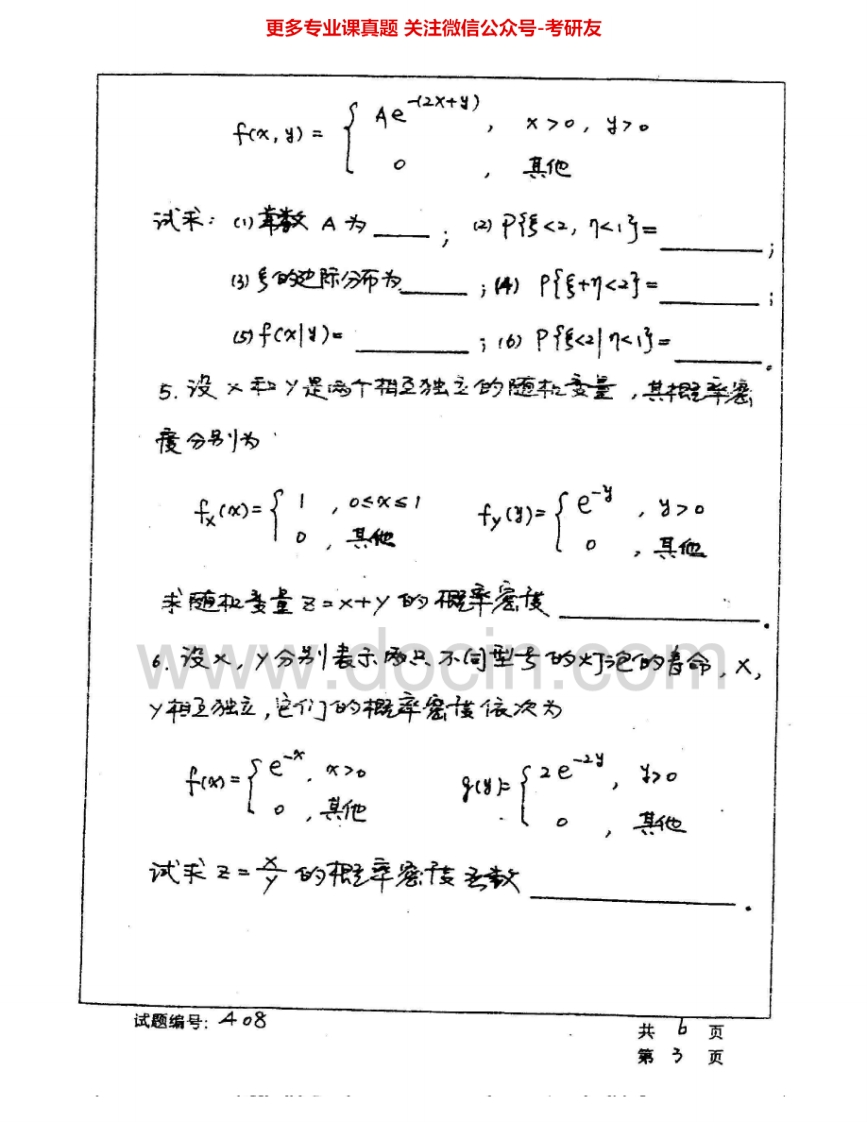 更多专业课真题 关注微信公众号-考研友
f(x,y) = { Ae^{-(2x+y)}, x>0, y>0
0, 其他
试求: (1) 常数 A 为____; (2) P{ξ<2, η<1}=____;
(3) ξ的边际分布为____; (4) P{ξ+η<2}=____;
(5) f(x|y)=____; (6) P{ξ<2|η<1}=____.
5. 设 X 和 Y 是两个相互独立的随机变量, 其概率密
度分别为
f_X(x)= { 1, 0≤x≤1 f_Y(y)= { e^{-y}, y>0
0, 其他 0, 其他
求随机变量 Z=X+Y 的概率密度____.
www.docin.com
6. 设X, Y分别表示两只不同型号的灯泡的寿命, X,
Y相互独立, 它们的概率密度依次为
f(x)= { e^{-x}, x>0 g(y)= { 2e^{-2y}, y>0
0, 其他 0, 其他
试求 Z=X/Y 的概率密度函数____.
试题编号: A08
共 6 页
第 3 页